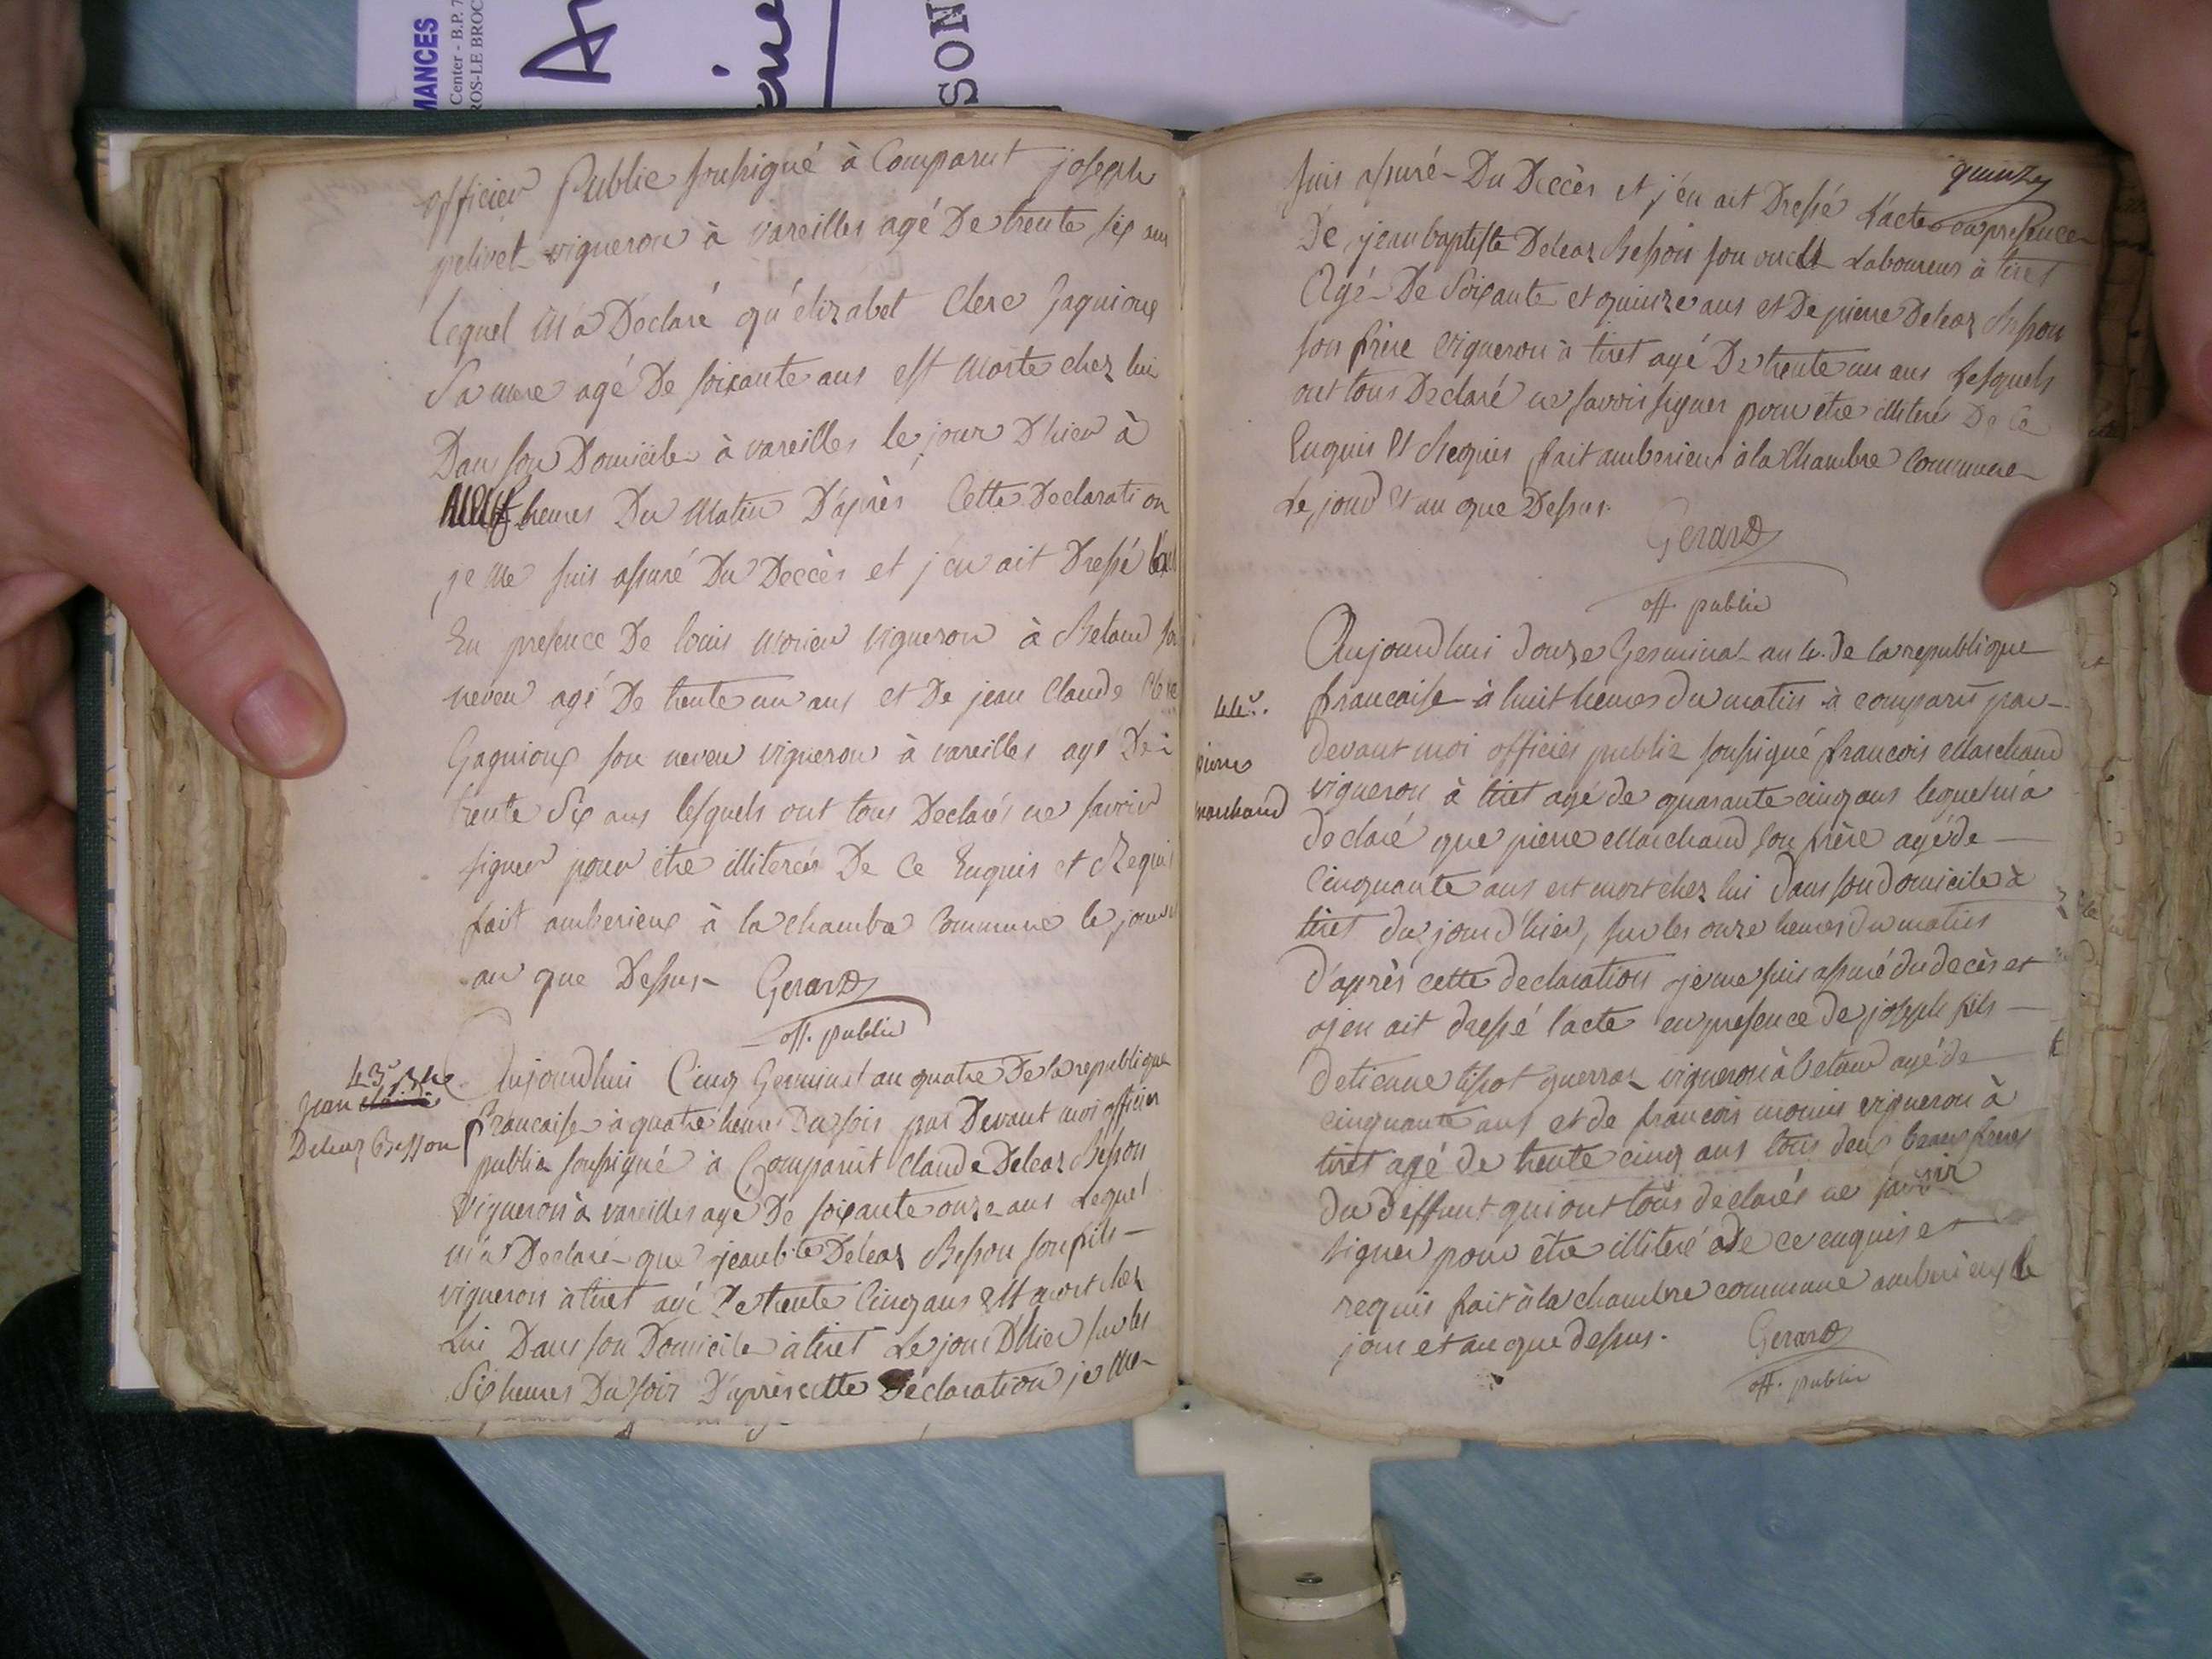 MANCES
Center - B.P. 7
ROS-LE BROC
SON
officier Public soussigné à Comparut joseph
pelivet vigneron à vareilles agé De trente six ans
lequel m'a Déclaré qu'elizabet Clerc Gagnioux
Sa mere agé De soixante ans est Morte chez lui
Dans son Domicile à vareilles le jour D'hier à
Neuf heures Du Matin D'après Cette Declaration
je me suis assuré Du Deccès et j'en ait Dressé
En presence De louis Morier vigneron à Betaud son
neveu agé De trente un ans et De jean Claude Clerc
Gagnioux son neveu vigneron à vareilles agé De
trente Six ans lesquels ont tous Declarés ne savoir
signer pour être illiterés De Ce Enquis et Requis
fait amberieux à la chambre Commune le jour
an que Dessus Gerard
off. public
43e Bte
jean claude
Deleaz Besson
Aujourdhui Cinq Germinal an quatre De la republique
francaise à quatre heures Du soir par Devant moi officier
public soussigné à Comparut Claude Deleaz Besson
Vigneron à vareilles agé De soixante onze ans Lequel
m'a Declaré que jean bte Deleaz Besson son fils
vigneron à tiret agé De trente Cinq ans Est mort chez
Lui Dans son Domicile à tiret Le jour D'hier sur les
Six heures Du soir D'après cette Déclaration je me
quinze
suis assuré Du Deccès et j'en ait Dressé L'acte en presence
De jean baptiste Deleaz Besson son oncle Laboureur à tiret
Agé De Soixante et quinze ans et De pierre Deleaz Besson
son frère vigneron à tiret agé De trente un ans Lesquels
ont tous Declaré ne savoir signer pour être illiteré De Ce
Enquis Et Requis fait amberieux à la Chambre Commune
Le jour Et an que Dessus.
Gerard
off. public
Aujourdhui douze Germinal an 4. de la republique
44e.
francaise à huit heures du matin à comparu par
devant moi officier public soussigné francois Marchand
pierre
marchand
vigneron à tiret agé de quarante cinq ans lequel m'a
declaré que pierre Marchand son frère agé de
Cinquante ans est mort chez lui dans son domicile à
tiret du jour d'hier, sur les onze heures du matin
d'après cette declaration je me suis assuré du decès et
j'en ait dressé l'acte en presence de joseph fils
detienne tissot guerraz vigneron à betaud agé de
cinquante ans et de francois morier vigneron à
tiret agé de trente cinq ans tous deux beaux freres
du deffunt qui ont tous declarés ne savoir
signer pour être illiteré de ce enquis et
requis fait à la chambre commune amberieux le
jour et an que dessus. Gerard
off. public